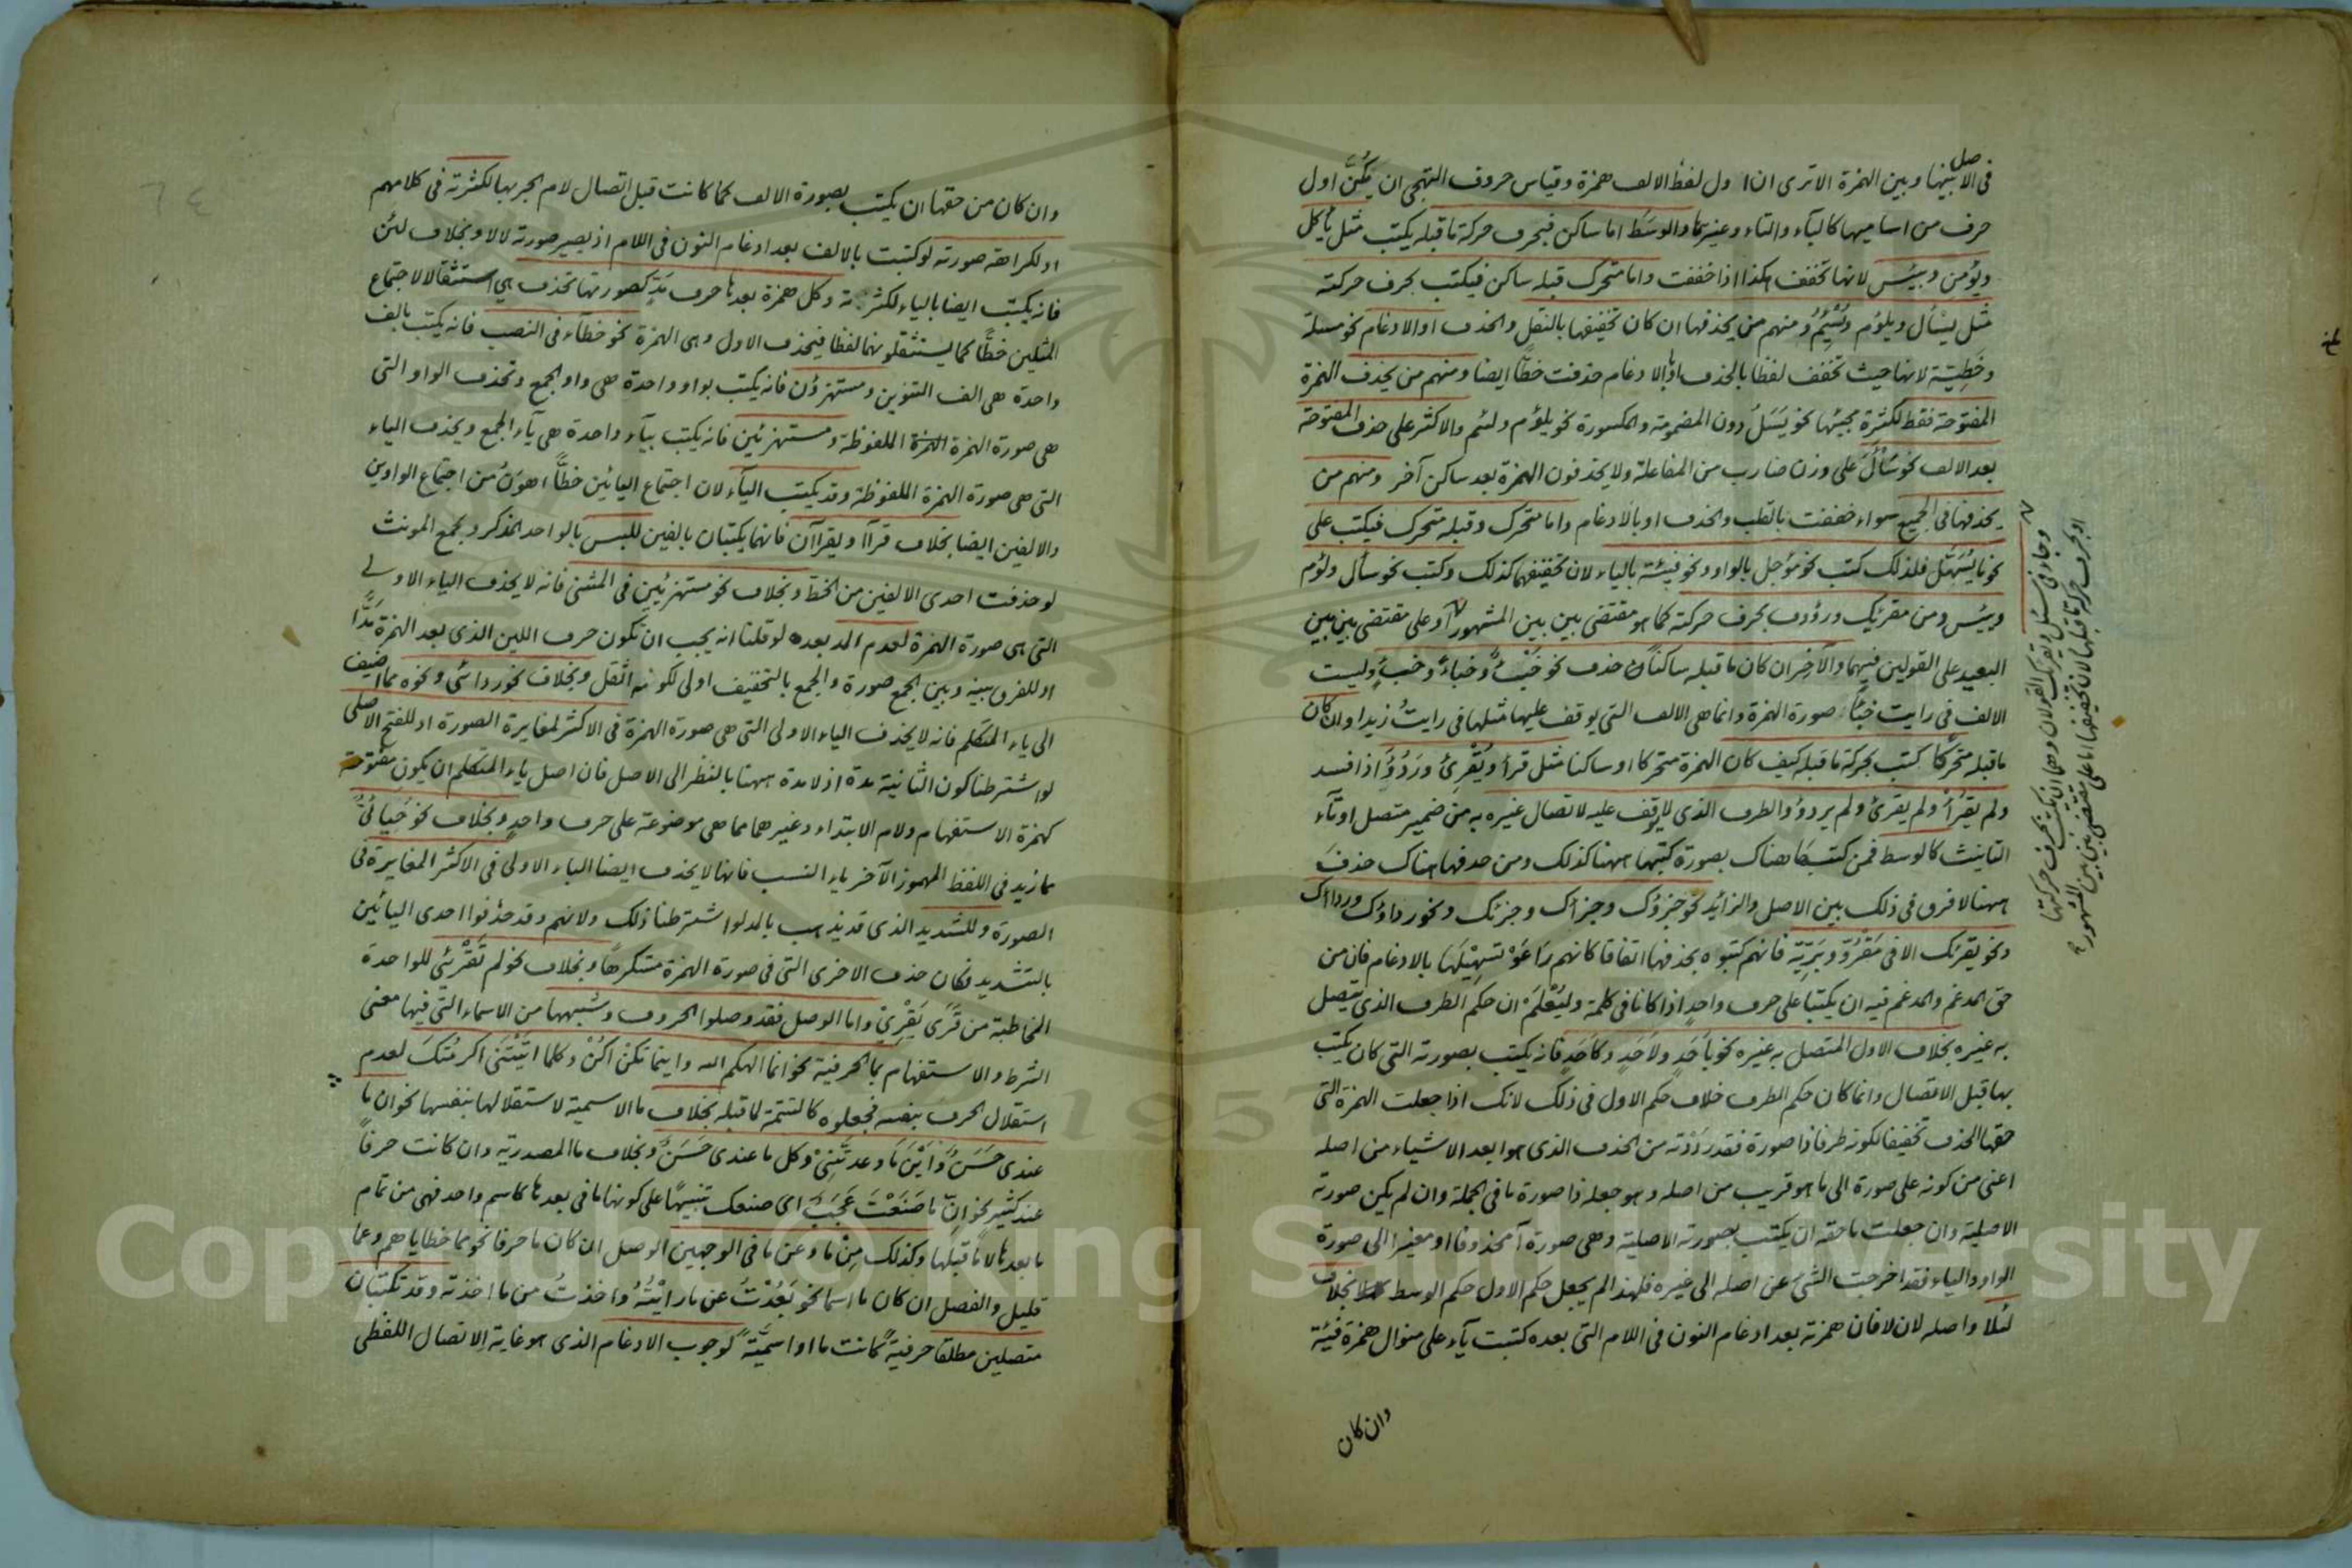 في الاصل بينها وبين الهمزة الا ترى ان اول لفظ الالف همزة وقياس حروف التهجي ان يكن اول
حرف من اساميها كالباء والتاء وغيرهما والوسط اما ساكن فبحرف حركة ما قبله يكتب مثل يأكل
ويؤمن وبئس لانها تخفف هكذا اذا خففت واما متحرك قبله ساكن فيكتب بحرف حركته
مثل يسأل ويلؤم ويسئم ومنهم من يحذفها ان كان تخفيفها بالنقل والحذف او الادغام نحو مسلة
وخطية لانها حيث تخفف لفظا بالحذف او الادغام حذفت خطا ايضا ومنهم من يحذف الهمزة
المفتوحة فقط لكثرة مجيئها نحو يسل دون المضمومة والمكسورة نحو يلؤم ولئم والاكثر على حذف المفتوحة
بعد الالف نحو سأل على وزن ضارب من المفاعلة ولا يحذفون الهمزة بعد ساكن آخر ومنهم من
يحذفها في الجميع سواء خففت بالقلب والحذف او بالادغام واما متحرك وقبله متحرك فيكتب على
نحو ما يسهل فلذلك كتب نحو مؤجل بالواو ونحو فيئة بالياء لان تخفيفهما كذلك وكتب نحو سأل ولؤم
وبئس ومن مقرئك ورؤوف بحرف حركته كما هو مقتضى بين بين المشهور او على مقتضى بين بين
البعيد على القولين فيهما والآخر ان كان ما قبله ساكنا حذف نحو خبء وخباء وخبء وليست
الالف في رايت خبأ صورة الهمزة وانما هي الالف التي يوقف عليها مثلها في رايت زيدا وان كان
ما قبله متحركا كتب بحركة ما قبله كيف كان الهمزة متحركا او ساكنا مثل قرأ ويقرئ وردؤ اذا فسد
ولم يقرأ ولم يقرئ ولم يردؤ والطرف الذي لا يوقف عليه لاتصال غيره به من ضمير متصل او تاء
التانيث كالوسط فمن كتبها هناك بصورة كتبها ههنا كذلك ومن حذفها هناك حذف
ههنا لا فرق في ذلك بين الاصل والزائد نحو جزؤك وجزأك وجزئك ونحو رداؤك ورداأك
ونحو يقرئك الا في مقروة وبرية فانهم كتبوه بحذفها اتفاقا كانهم راعوا تسهيلها بالادغام فان من
حق المدغم والمدغم فيه ان يكتبا على حرف واحد اذا كانا في كلمة وليعلم ان حكم الطرف الذي يتصل
به غيره بخلاف الاول المتصل به غيره نحو بأحد ولأحد وكأحد فانه يكتب بصورته التي كان يكتب
بها قبل الاتصال وانما كان حكم الطرف خلاف حكم الاول في ذلك لانك اذا جعلت الهمزة التي
حقها الحذف تخفيفا لكونه طرفا ذا صورة فقد رددته من الحذف الذي هو ابعد الاشياء من اصله
اعني من كونه على صورة الى ما هو قريب من اصله وهو جعله ذا صورة ما في الجملة وان لم يكن صورته
الاصلية وان جعلت ما حقه ان يكتب بصورته الاصلية وهي صورة آ محذوفا او مغيرا الى صورة
الواو والياء فقد اخرجت الشئ عن اصله الى غيره فلهذا لم يجعل حكم الاول حكم الوسط بخلاف
لئلا واصله لان لا فان همزته بعد ادغام النون في اللام التي بعده كتبت ياء على منوال همزة فيئة
وان كان
وجاء في سئل ويقرئك القولان وهما ان يكتب بحرف حركتها
او بحرف حركة ما قبلها لان تخفيفها اما على مقتضى بين بين المشهور
وان كان من حقها ان يكتب بصورة الالف كما كانت قبل اتصال لام الجر بها لكثرته في كلامهم
او لكراهة صورته لو كتبت بالالف بعد ادغام النون في اللام اذ يصير صورته لالا وبخلاف لئن
فانه يكتب ايضا بالياء لكثرته وكل همزة بعدها حرف مد كصورتها تحذف هي استثقالا لاجتماع
المثلين خطا كما يستثقلونهما لفظا فيحذف الاول وهي الهمزة نحو خطاء في النصب فانه يكتب بالف
واحدة هي الف التنوين ومستهزؤن فانه يكتب بواو واحدة هي واو الجمع وتحذف الواو التي
هي صورة الهمزة الملفوظة ومستهزئين فانه يكتب بياء واحدة هي ياء الجمع ويحذف الياء
التي هي صورة الهمزة الملفوظة وقد يكتب الياء لان اجتماع اليائين خطا اهون من اجتماع الواوين
والالفين ايضا بخلاف قرأا ويقرأان فانهما يكتبان بالفين للبس بالواحد المذكر وبجمع المونث
لو حذفت احدى الالفين من الخط وبخلاف نحو مستهزئين في المثنى فانه لا يحذف الياء الاولى
التي هي صورة الهمزة لعدم المد بعده لو قلنا انه يجب ان تكون حرف اللين الذي بعد الهمزة مدا
او للفرق بينه وبين الجمع صورة والجمع بالتخفيف اولى لكونه اثقل وبخلاف نحو ردائي ونحوه مما اضيف
الى ياء المتكلم فانه لا يحذف الياء الاولى التي هي صورة الهمزة في الاكثر لمغايرة الصورة او للفتح الاصلي
لو اشترطنا كون الثانية مدة اذ لا مدة ههنا بالنظر الى الاصل فان اصل ياء المتكلم ان يكون مفتوحة
كهمزة الاستفهام ولام الابتداء وغيرهما مما هي موضوعة على حرف واحد وبخلاف نحو خبائي
مما زيد في اللفظ المهموز الآخر ياء النسب فانها لا يحذف ايضا الياء الاولى في الاكثر المغايرة في
الصورة وللتشديد الذي قد يذهب بالمد لو اشترطنا ذلك ولانهم وقد حذفوا احدى اليائين
بالتشديد فكان حذف الاخرى التي في صورة الهمزة مستكرها وبخلاف نحو لم تقرئي للواحدة
المخاطبة من قرى يقري واما الوصل فقد وصلوا الحروف وشبهها من الاسماء التي فيها معنى
الشرط والاستفهام بما الحرفية نحو انما الهكم الله واينما تكن اكن وكلما اتيتني اكرمتك لعدم
استقلال الحرف بنفسه فجعلوه كالتتمة لما قبله بخلاف ما الاسمية لاستقلالها بنفسها نحو ان ما
عندي حسن واين ما وعدتني وكل ما عندي حسن وبخلاف ما المصدرية وان كانت حرفا
عند كثير نحو ان ما صنعت عجب اي صنعك تنبيها على كونها ما في بعدها كاسم واحد فهي من تمام
ما بعدها لا ما قبلها وكذلك من ما وعن ما في الوجهين الوصل ان كان ما حرفا نحو مما خطاياهم وعما
قليل والفصل ان كان ما اسما نحو بعدت عن ما رايته واخذت من ما اخذته وقد تكتبان
متصلين مطلقا حرفية كانت ما او اسمية لوجوب الادغام الذي هو غاية الاتصال اللفظي
Copyright © King Saud University
1957